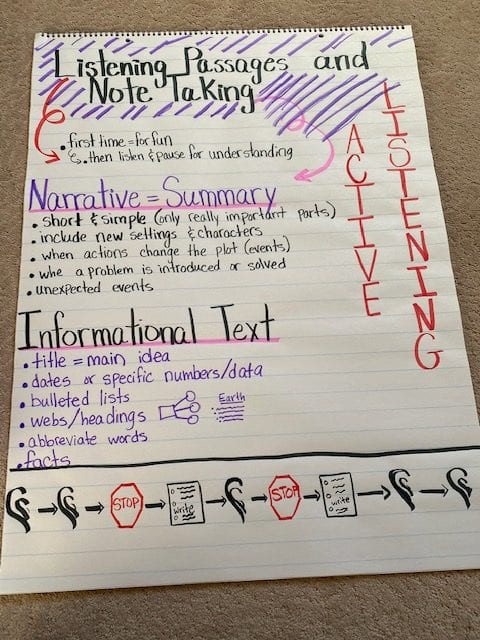 Listening Passages and
Note Taking
• first time = for fun
then listen & pause for understanding
ACTIVE
LISTENING
Narrative = Summary
• short & simple (only really important parts)
• include new settings & characters
• when actions change the plot (events)
• whe a problem is introduced or solved
• unexpected events
Informational Text
• title = main idea
• dates or specific numbers/data
• bulleted lists
• webs/headings
Earth
• abbreviate words
• facts
STOP
write
STOP
write